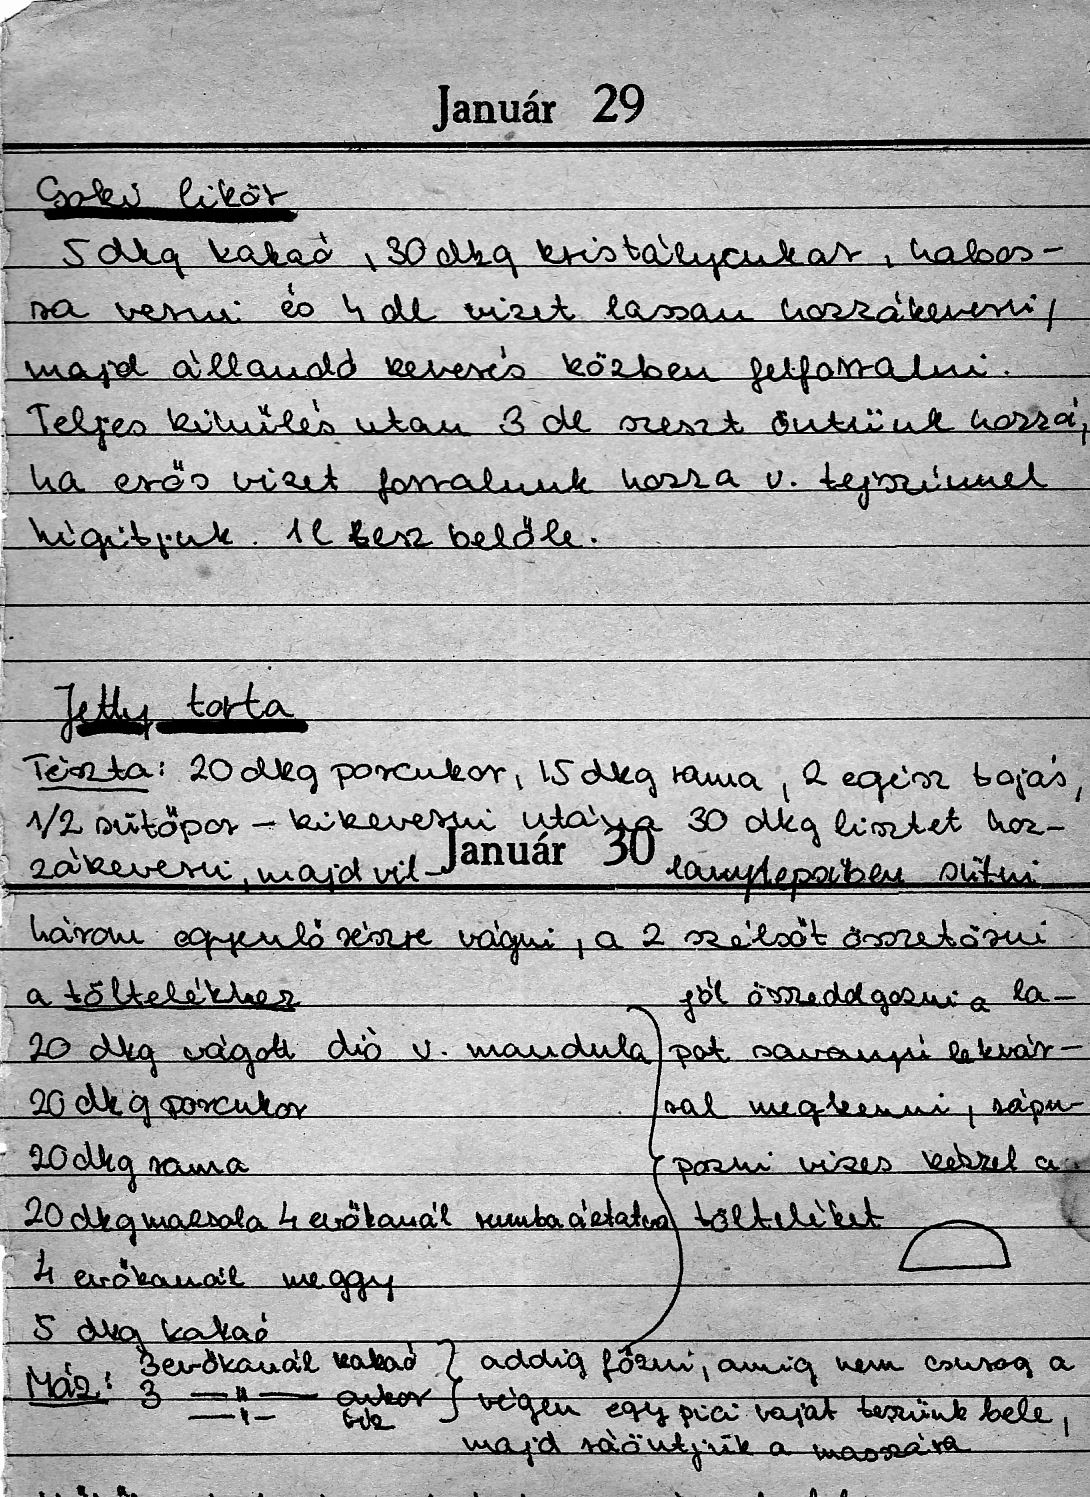 Január 29
Csoki likőr
5 dkg kakaó, 30 dkg kristálycukor, habos-
ra verni és 4 dl vizet lassan hozzákeverni,
majd állandó keverés közben felforralni.
Teljes kihűlés utan 3 dl szeszt öntünk hozzá,
ha erős vizet forralunk hozza v. tejszínnel
higitjuk. 1l lesz belőle.
Jetty torta
Tészta: 20 dkg porcukor, 15 dkg rama, 2 egész tojás,
1/2 sütőpor – kikeverni utána 30 dkg lisztet hoz-
Január 30
zákeverni, majd vil- lanytepsiben sütni
három egyenlő részre vágni, a 2 szélsőt összetörni
a töltelékhez
20 dkg vágott dió v. mandula
20 dkg porcukor
20 dkg rama
20 dkg mazsola 4 evőkanál rumba áztatva
4 evőkanál meggy
5 dkg kakaó
jól összedolgozni a la-
pot savanyú lekvár-
ral megkenni, rápu-
pozni vizes kézzel a
tölteléket
Máz: 3 evőkanál kakaó
3 —"— cukor
—"— víz
addig főzni, amig nem csurog a
végén egy pici vajat teszünk bele,
majd ráöntjük a masszára